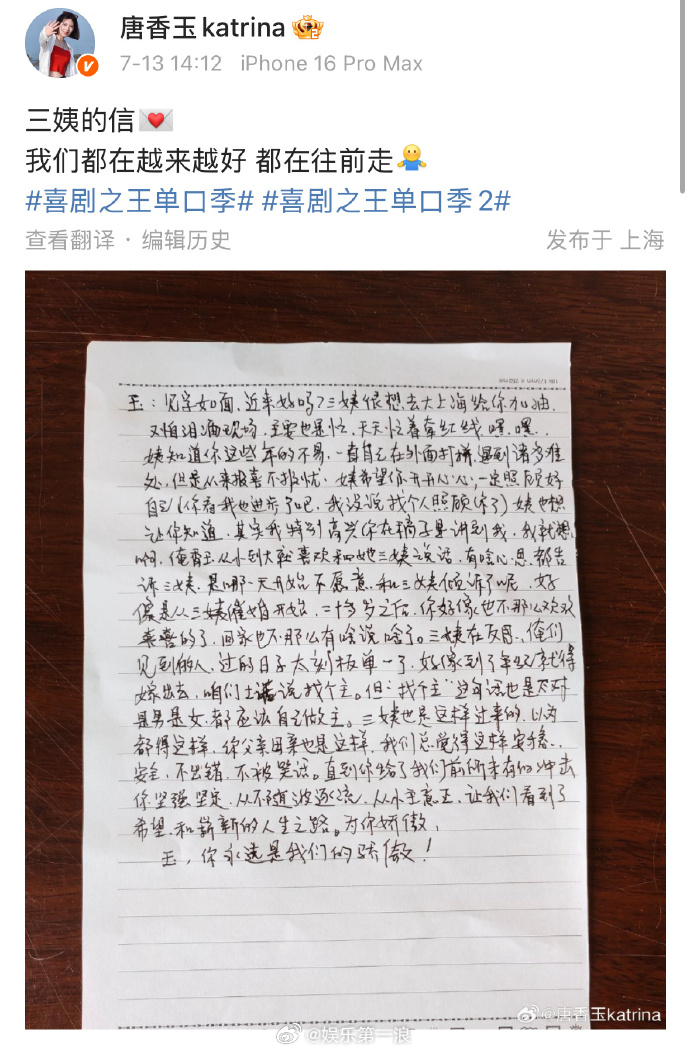 唐香玉katrina
7-13 14:12 iPhone 16 Pro Max
三姨的信💌
我们都在越来越好 都在往前走🤷
#喜剧之王单口季# #喜剧之王单口季2#
查看翻译 · 编辑历史
发布于 上海
玉:见字如面,近来好吗?三姨很想去大上海给你加油,
又怕泪洒现场,主要也是忙,天天忙着牵红线,嘿嘿。
姨知道你这些年的不易,一直自己在外面打拼,遇到诸多难
处,但是从来报喜不报忧,姨希望你开开心心,一定照顾好
自己(你看我也进步了吧,我没说找个人照顾你了)姨也想
让你知道,其实我特别高兴你在稿子里讲到我,我就想
啊,俺香玉从小到大就喜欢和她三姨说话,有啥心思都告
诉三姨,是哪一天开始不愿意和三姨倾诉了呢,好
像是从三姨催婚开始,二十多岁之后,你好像也不那么欢欢
喜喜的了,回家也不那么有啥说啥了。三姨在反思,俺们
见到的人,过的日子太刻板单一了,好像到了年纪就得
嫁出去,咱们土话说找个主。但“找个主”这句话也是不对
是男是女,都应该自己做主。三姨也是这样过来的,以为
都得这样,你父亲母亲也是这样,我们总觉得这样安稳,
安全,不出错,不被笑话。直到你给了我们前所未有的冲击
你坚强坚定,从不随波逐流,从小主意正,让我们看到了
希望,和崭新的人生之路。为你骄傲,
玉,你永远是我们的骄傲!
@唐香玉katrina
@娱乐第一浪